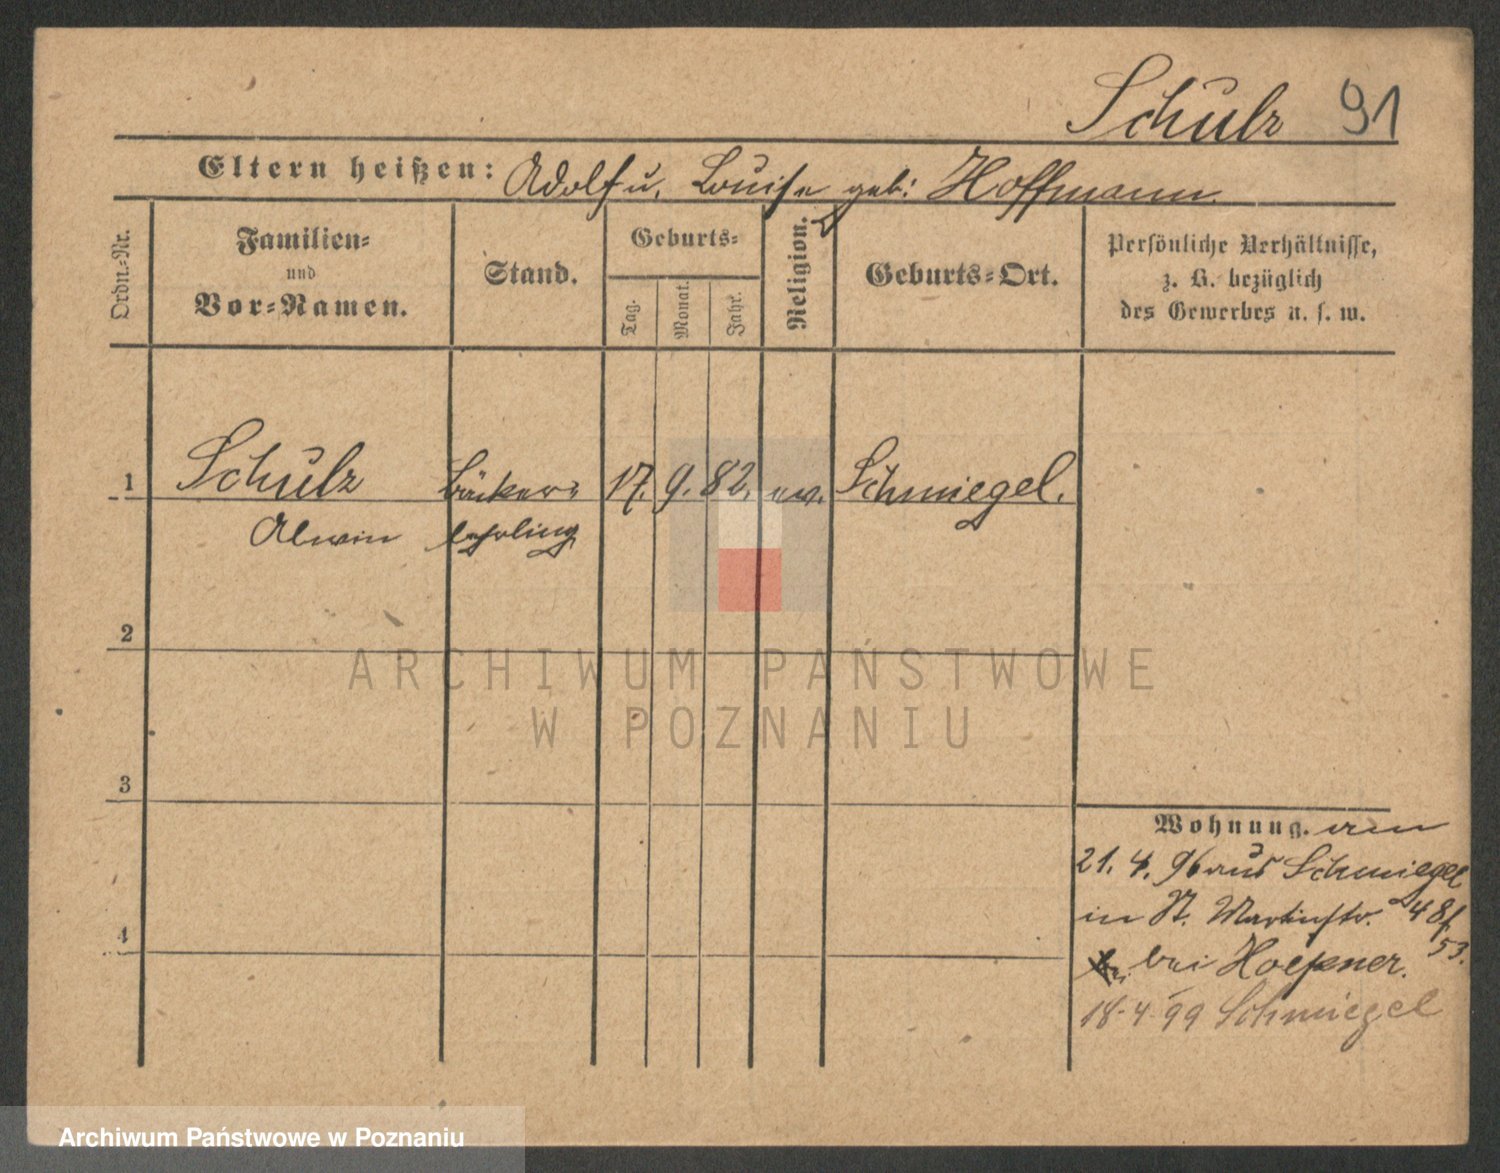 Schulz 91
Eltern heißen: Adolf u. Louise geb: Hoffmann.
Ordn.=Nr.
Familien=
und
Vor=Namen.
Stand.
Geburts=
Tag.
Monat.
Jahr.
Religion.
Geburts=Ort.
Persönliche Verhältnisse,
z. B. bezüglich
des Gewerbes u. s. w.
1 Schulz Bäcker= 17. 9. 82. ev. Schmiegel.
Alwin lehrling
2
3
4
Wohnung. am
21. 4. 96 aus Schmiegel
in St. Martinstr. 48/
53.
bei Hoepner.
18-4-99 Schmiegel
ARCHIWUM PAŃSTWOWE
W POZNANIU
Archiwum Państwowe w Poznaniu